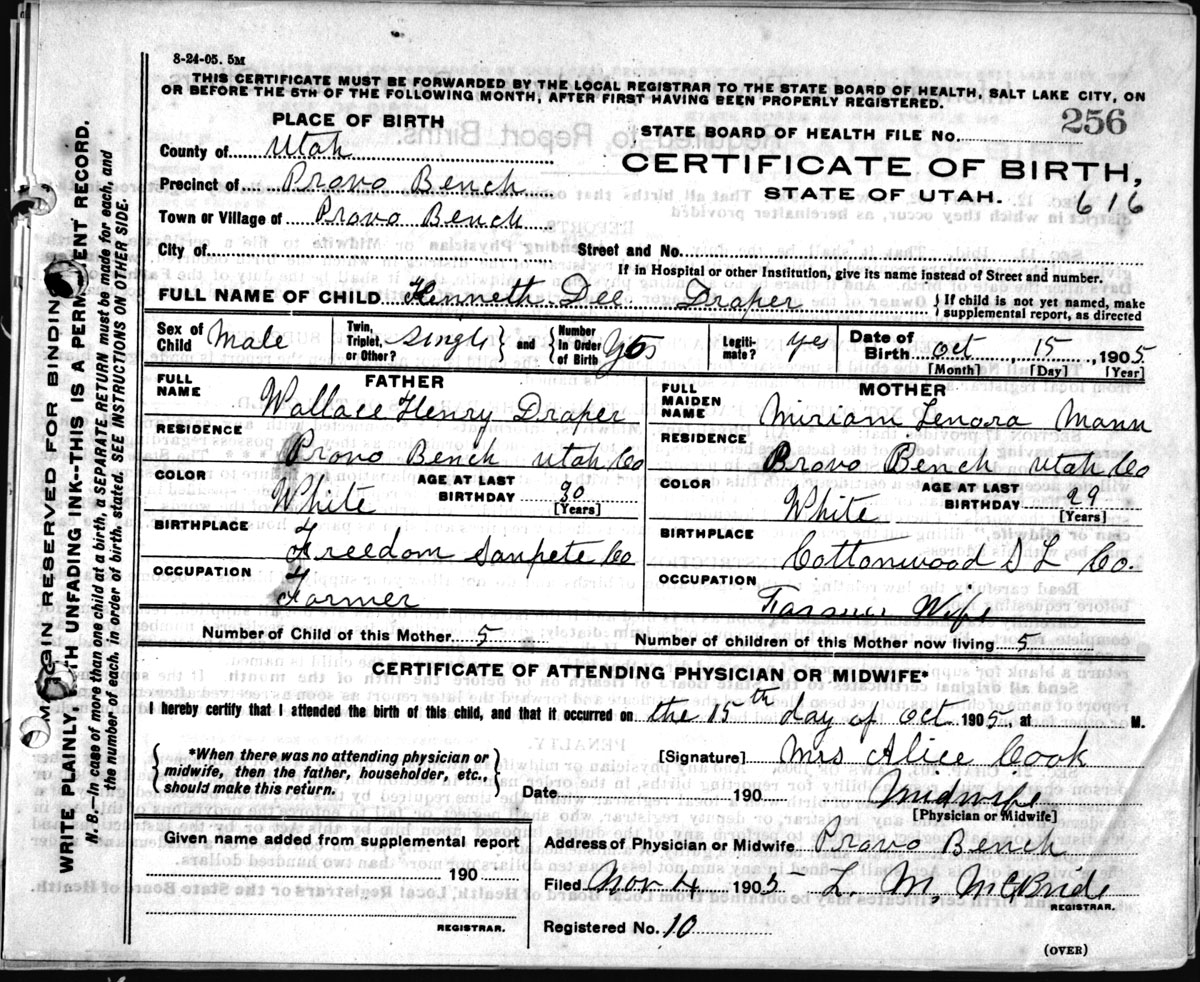 8-24-05. 5M
THIS CERTIFICATE MUST BE FORWARDED BY THE LOCAL REGISTRAR TO THE STATE BOARD OF HEALTH, SALT LAKE CITY, ON
OR BEFORE THE 5TH OF THE FOLLOWING MONTH, AFTER FIRST HAVING BEEN PROPERLY REGISTERED.
PLACE OF BIRTH
STATE BOARD OF HEALTH FILE No. 256
County of Utah
CERTIFICATE OF BIRTH,
Precinct of Provo Bench
STATE OF UTAH. 616
Town or Village of Provo Bench
City of Street and No.
If in Hospital or other Institution, give its name instead of Street and number.
FULL NAME OF CHILD Kenneth Dee Draper { If child is not yet named, make supplemental report, as directed
Sex of Child Male Twin, Triplet, or Other? Single } and { Number In Order of Birth Legiti-mate? yes Date of Birth Oct 15, 1905
[Month] [Day] [Year]
FATHER
FULL NAME Wallace Henry Draper
RESIDENCE Provo Bench Utah Co
COLOR White AGE AT LAST BIRTHDAY 30 [Years]
BIRTHPLACE Freedom Sanpete Co
OCCUPATION Farmer
MOTHER
FULL MAIDEN NAME Miriam Lenora Mann
RESIDENCE Provo Bench Utah Co
COLOR White AGE AT LAST BIRTHDAY 29 [Years]
BIRTHPLACE Cottonwood S L Co.
OCCUPATION Wife
Number of Child of this Mother 5 Number of children of this Mother now living 5
CERTIFICATE OF ATTENDING PHYSICIAN OR MIDWIFE*
I hereby certify that I attended the birth of this child, and that it occurred on the 15th day of Oct 1905, at M.
{ *When there was no attending physician or midwife, then the father, householder, etc., should make this return. }
[Signature] Mrs Alice Cook
Date 190 Midwife
[Physician or Midwife]
Given name added from supplemental report
190
REGISTRAR.
Address of Physician or Midwife Provo Bench
Filed Nov 4 1905 L. M. McBride
REGISTRAR.
Registered No. 10
(OVER)
MARGIN RESERVED FOR BINDING
WRITE PLAINLY WITH UNFADING INK--THIS IS A PERMANENT RECORD.
N. B.—In case of more than one child at a birth, a SEPARATE RETURN must be made for each, and
the number of each, in order of birth, stated. SEE INSTRUCTIONS ON OTHER SIDE.